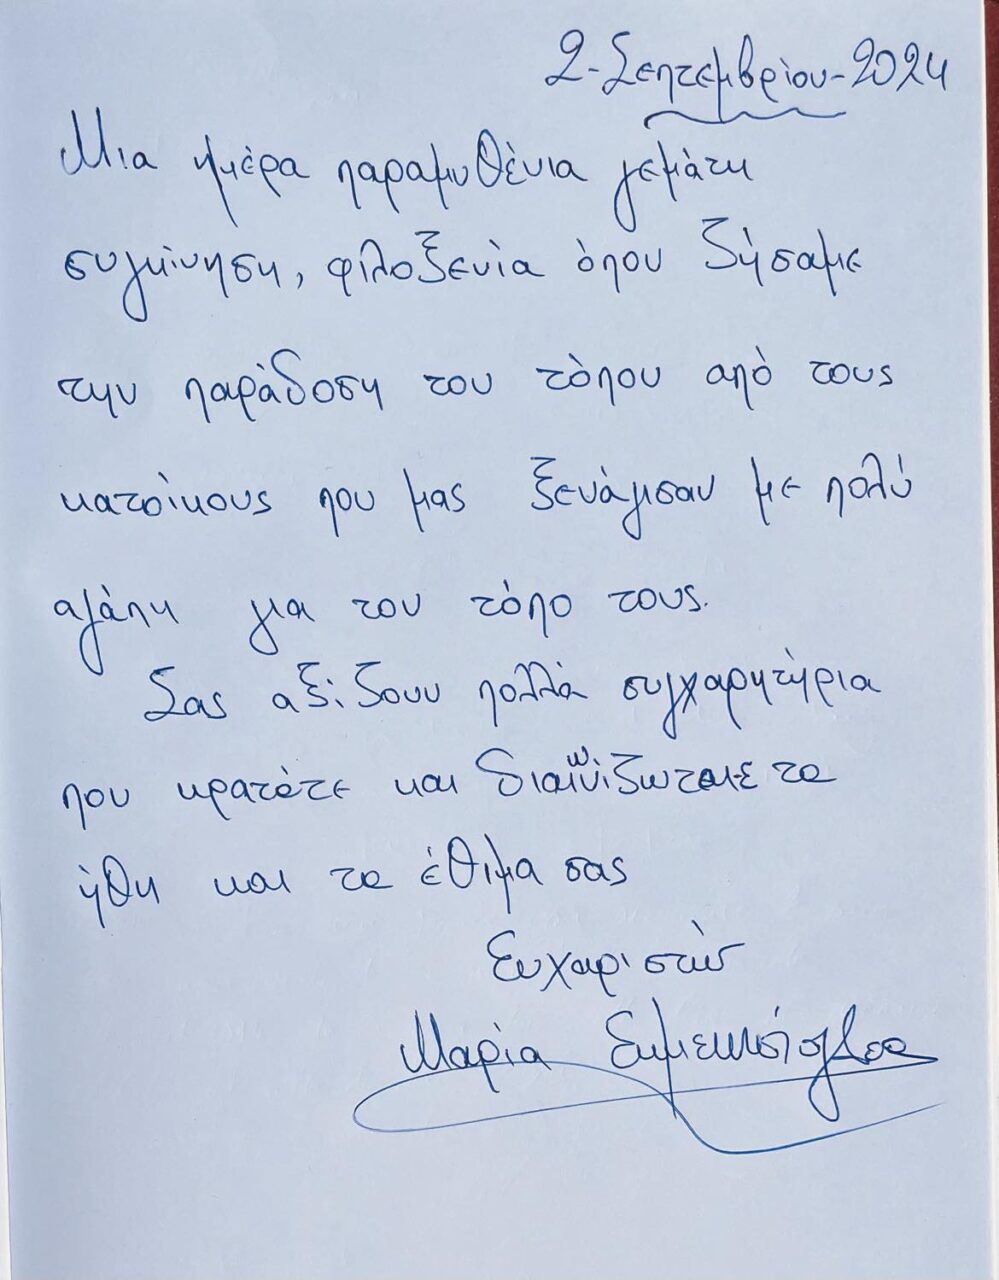 2-Σεπτεμβρίου-2024
Μια ημέρα παραμυθένια γεμάτη
συγκίνηση, φιλοξενία όπου ζήσαμε
την παράδοση του τόπου από τους
κατοίκους που μας ξενάγησαν με πολύ
αγάπη για τον τόπο τους.
Σας αξίζουν πολλά συγχαρητήρια
που κρατάτε και διαιωνίζωταιε τα
ήθη και τα έθιμα σας
Ευχαριστών
Μαρία